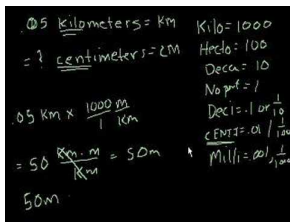 .05 kilometers = km
= ? centimeters = cm
.05 km x 1000 m / 1 km
= 50 km . m / km = 50 m
50m
Kilo = 1000
Hecto = 100
Deca = 10
No pref = 1
Deci = .1 or 1/10
CENTI = .01 / 1/100
Milli = .001,